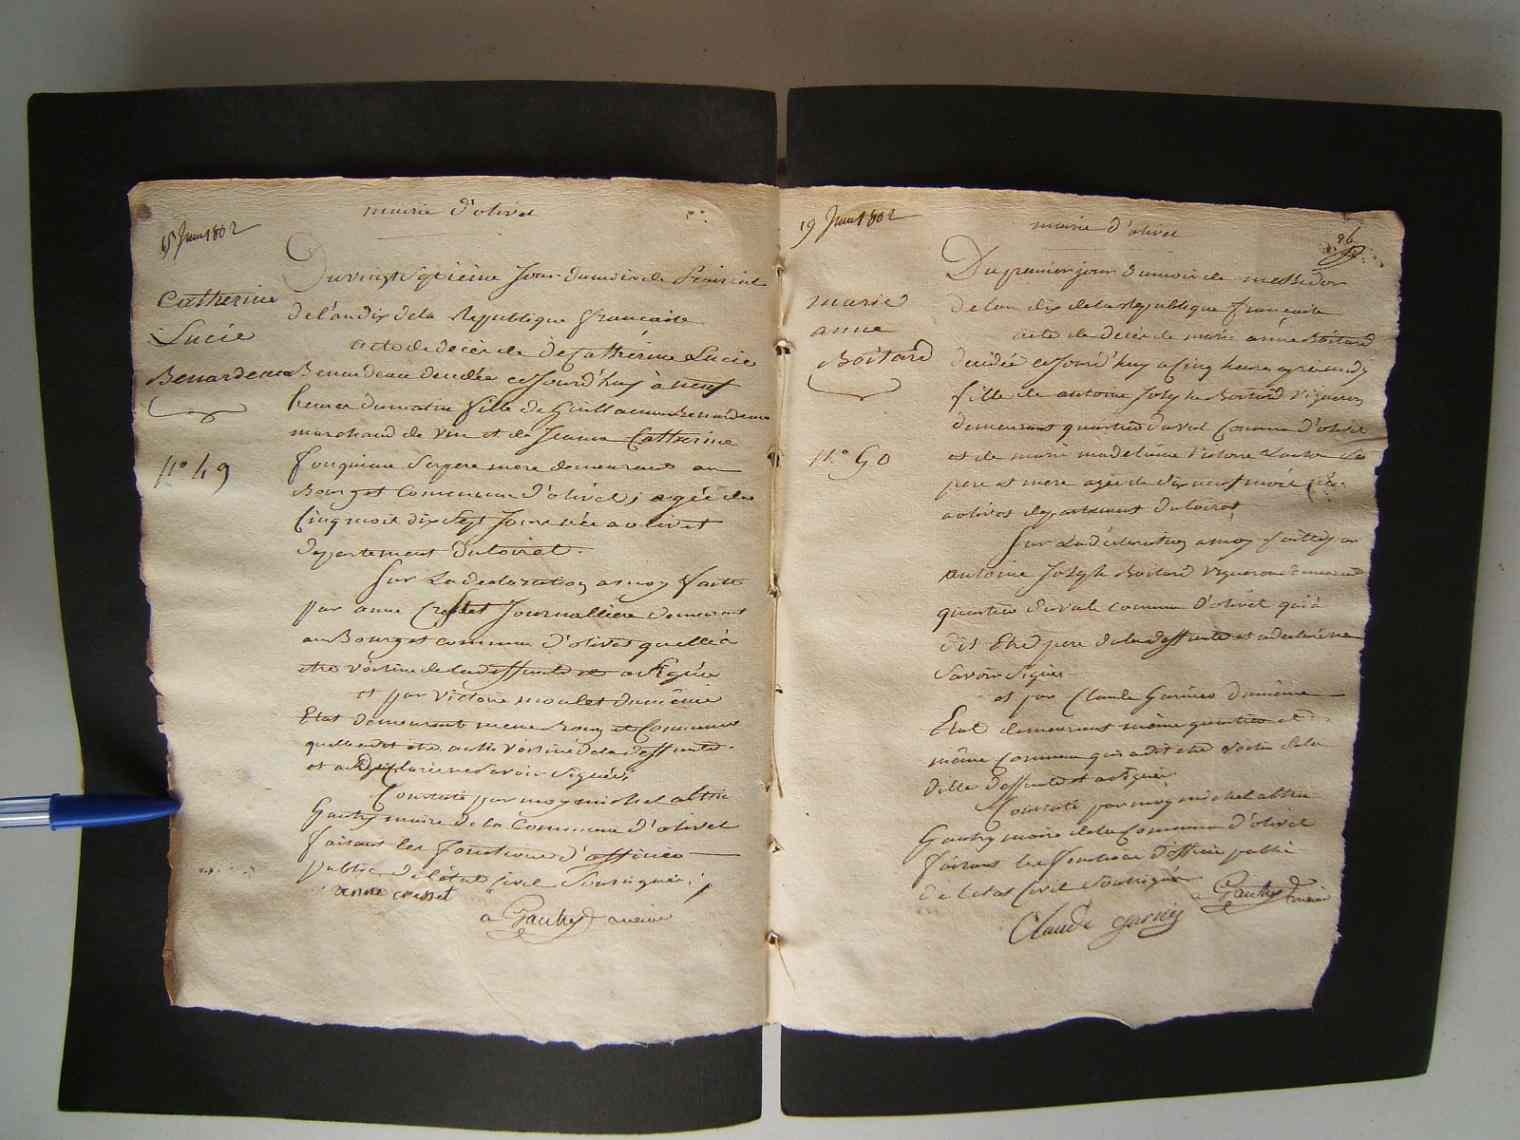 mairie d'olivet
15 Juin 1802
Catherine
Lucie
Benardeau
N.° 49
Du vingt Septieme Jour du mois de Prairial
de l'an dix de la Republique francaise
acte de décès de de Catherine Lucie
Benardeau decedée ce Jourd'huy à neuf
heures du matin fille de Guillaume Benardeau
marchand de vin et de Jeanne Catherine
Ses pere mere demeurant au
Bourg et Commune d'olivet, agée de
Cinq mois dix Sept Jours née a olivet
departement du loiret.
Sur La declaration a moy faitte
par anne Journalliere demeurant
au Bourg et commune d'olivet quelle à
etre voisine de la deffunte et a Signée
et par Victoire moulet du même
Etat demeurante meme Bourg et Commune
quelle a dit etre aussi voisine de la deffunte
et a declarée ne Savoir Signée,
Constaté par moy michel albin
Gautry maire de la Commune d'olivet
faisant les fonctions d'officier
public de l'état Civil Soussigné,
anne
a Gautry maire
19 Juin 1802
mairie d'olivet
96
marie
anne
Boitard
N.° 50
Du premier jour du mois de messidor
de l'an dix de la Republique francaise
acte de décès de marie anne Boitard
decedée ce Jourd'huy a Cinq heures apres midy
fille de antoine Joseph Boitard Vigneron
demeurant quartier du val Comune d'olivet
et de marie madelaine Victoire Ses
pere et mere agée de dix neuf mois née
a olivet departement du loiret
Sur La declaration a moy faitte par
antoine Joseph Boitard Vigneron demeurant
quartier du val comune d'olivet qui à
dit Etre pere de la deffunte et a declaré ne
Savoir Signer
et par Claude Garnier du même
Etat demeurant même quartier et
même Commune qui a dit etre voisin de la
ditte deffunte et a Signé.
Constaté par moy michel albin
Gautry maire de la Commune d'olivet
faisant les fonctions d'officier public
de l'etat Civil Soussigné
a Gautry maire
Claude garnier